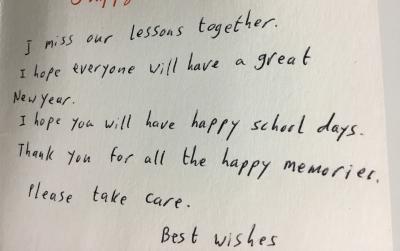 I miss our lessons together.
I hope everyone will have a great
New Year.
I hope you will have happy school days.
Thank you for all the happy memories.
Please take care.
Best wishes